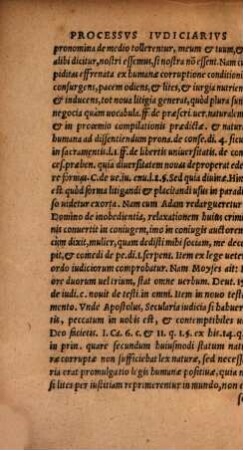 PROCESSVS IVDICIARIVS
pronomina de medio tollerentur, meum & tuum, &
alibi dicitur, nostri essemus, si nostra nõ essent. Nam cu
piditas effrenata ex humanæ corruptione conditioni
consurgens, pacem odiens, & lites, & iurgia nutrien
& inducens, tot noua litigia generat, quòd plura sunt
negocia quàm uocabula. ff. de præscri. uer. naturalem
& in proœmio compilationis prædictæ. & natur
humana ad dissentiendum prona. de consedi. 4. fiuci
in sacramentis. l. ff. de liberis uniuersitatis, in de con
ces. præben. quia diuersitatem nouas deproperat edere
re formas. C. de ue. iu. enu. l. 1. §. Sed quia diuinæ. Hinc
est quòd forma litigandi & placitandi usus in paradi
so uidetur exorta. Nam cum Adam redargueretur
Domino de inobedientia, relaxationem huius crimi
nis conuertit in coniugem, imo in coniugij auctorem
cùm dixit, mulier, quam dedisti mihi sociam, me decepit
pit, & comedi de pe. di. 1. serpent. Item ex lege uetere
ordo iudiciorum comprobatur. Nam Moyses ait: In
ore duorum uel trium, stat omne uerbum. Deut. 17
de iudi. c. nouit. de testi. in omni. Item in nouo testa
mento. Vnde Apostolus, Secularia iudicia si habueri
tis, peccatum in uobis est, & contemptibiles in
Deo sicietis. 1. Co. 6. c. & 11. q. 1. §. ex his. 24. q.
in prin. quare secundum huiusmodi statum natu
ræ corruptæ non sufficiebat lex naturæ, sed neces
ria erat promulgatio legis humanæ positiuæ, quia ni
si lites per iustitiam reprimerentur in mundo, non e